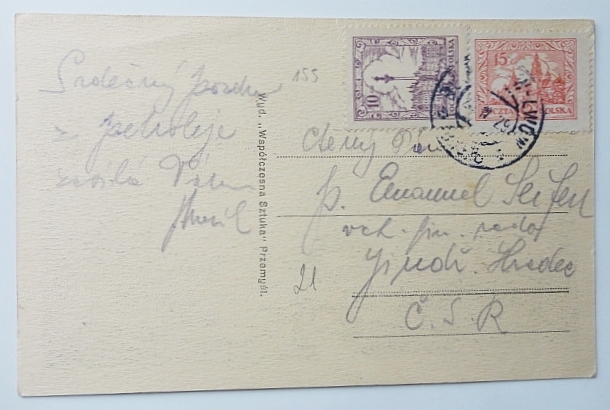 Srdečný pozdrav
z
zasílá Vám
155
Wyd. „Współczesna Sztuka" Przemyśl.
10
POLSKA
15
POCZTA POLSKA
LWÓW
ctěný Pán
p. Emanuel
vrch. fin. rada
Jindř. Hradec
Č. S. R
21